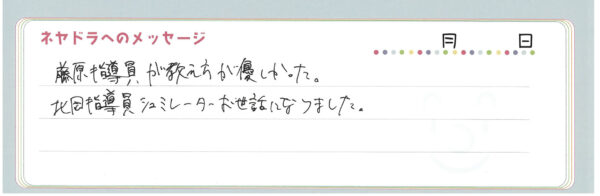 ネヤドラへのメッセージ
月 日
藤原指導員が教え方が優しかった。
北岡指導員シュミレーターお世話になりました。